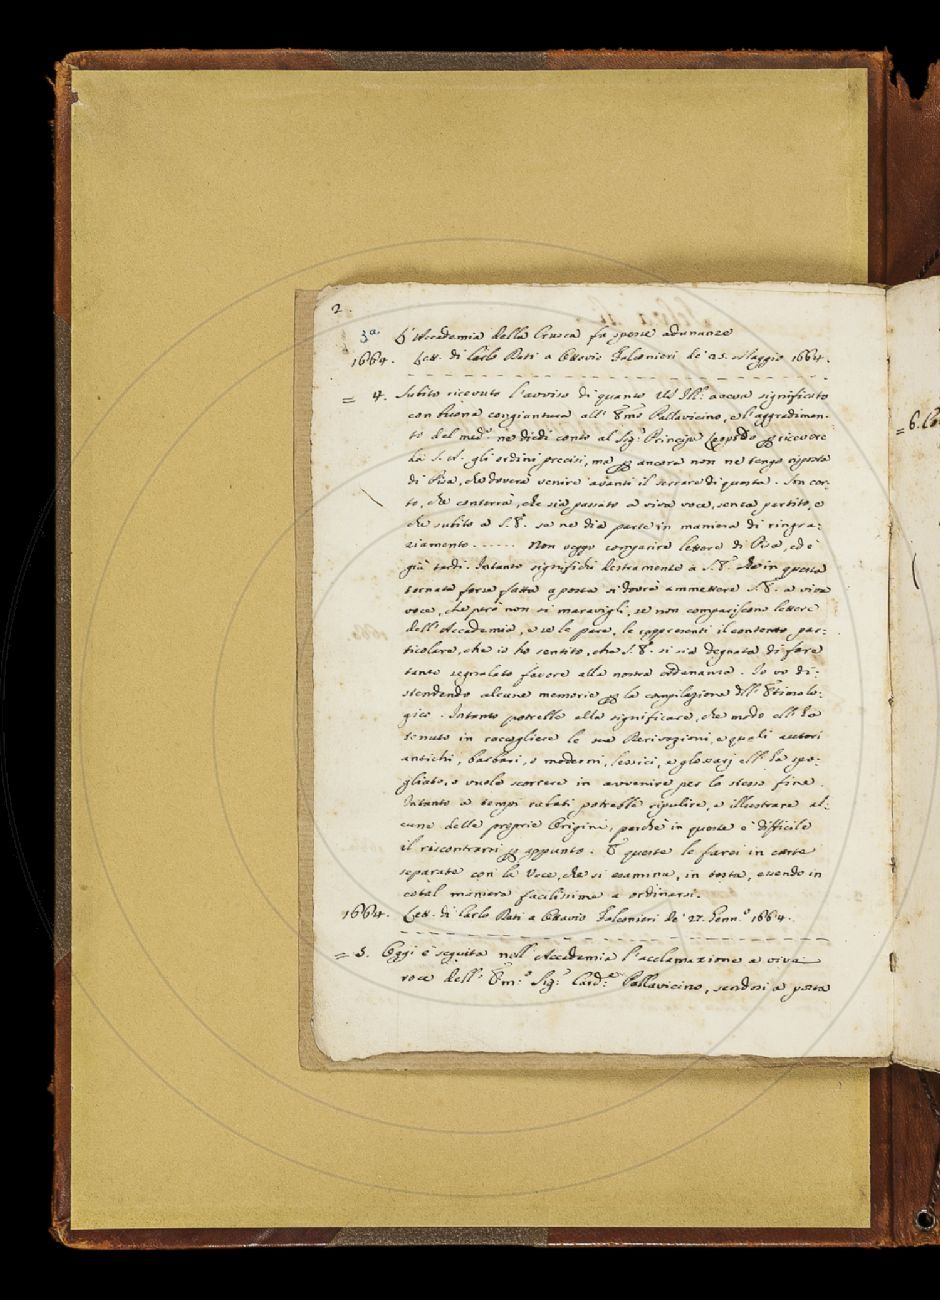 2.
3ª. L'Accademia della Crusca fa spesse adunanze
1664. Lett. di Carlo Dati a Ottavio Falconieri de' 25. Maggio 1664.
= 4. Subito ricevuto l'avviso di quanto VS Ill.ª aveva significato
con buona congiuntura all' Emo Pallavicino, e l'aggradimen-
to del med.º ne diedi conto al Sig.r Principe Leopoldo per ricevere
da S. A. gli ordini precisi, ma per ancora non ne tengo risposta
di Pisa, che dovrà venire avanti il serrare di questa. Son cer-
to, che conterrà, che sia passato a viva voce, senza partito, e
che subito a S. E. se ne dia parte in maniera di ringra-
ziamento. ..... Non veggo comparire lettere di Pisa, ed è
già tardi. Intanto significhi destramente a S. E. che in questa
tornata forse fatta a posta si dovrà ammettere S. E. a viva
voce, che però non si maravigli, se non compariscono lettere
dell'Accademia, e se le pare, le rappresenti il contento par-
ticolare, che io ho sentito, che S. E. si sia degnata di fare
tanto segnalato favore alla nostra adunanza. Io vo di-
stendendo alcune memorie per la compilazione dell' Etimolo-
gico. Intanto potrebbe ella significare, che modo ell' ha
tenuto in raccogliere le sue Derivazioni, e quali autori
antichi, barbari, o moderni, lessici, e glossarj ell' ha spo-
gliato, o vuole scorrere in avvenire per lo stesso fine.
Intanto a tempi rubati potrebbe ripulire, e illustrare al-
cune delle proprie Origini, perchè in queste è difficile
il riscontrarsi per appunto. E queste le farei in carte
separate con la Voce, che si esamina, in testa, essendo in
cotal maniera facilissime a ordinarsi.
1664. Lett. di Carlo Dati a Ottavio Falconieri de' 27. Genn.º 1664.
= 5. Oggi è seguita nell' Accademia l'acclamazione a viva
voce dell' Em.º Sig.r Card.e Pallavicino, sendosi a posta
= 6.